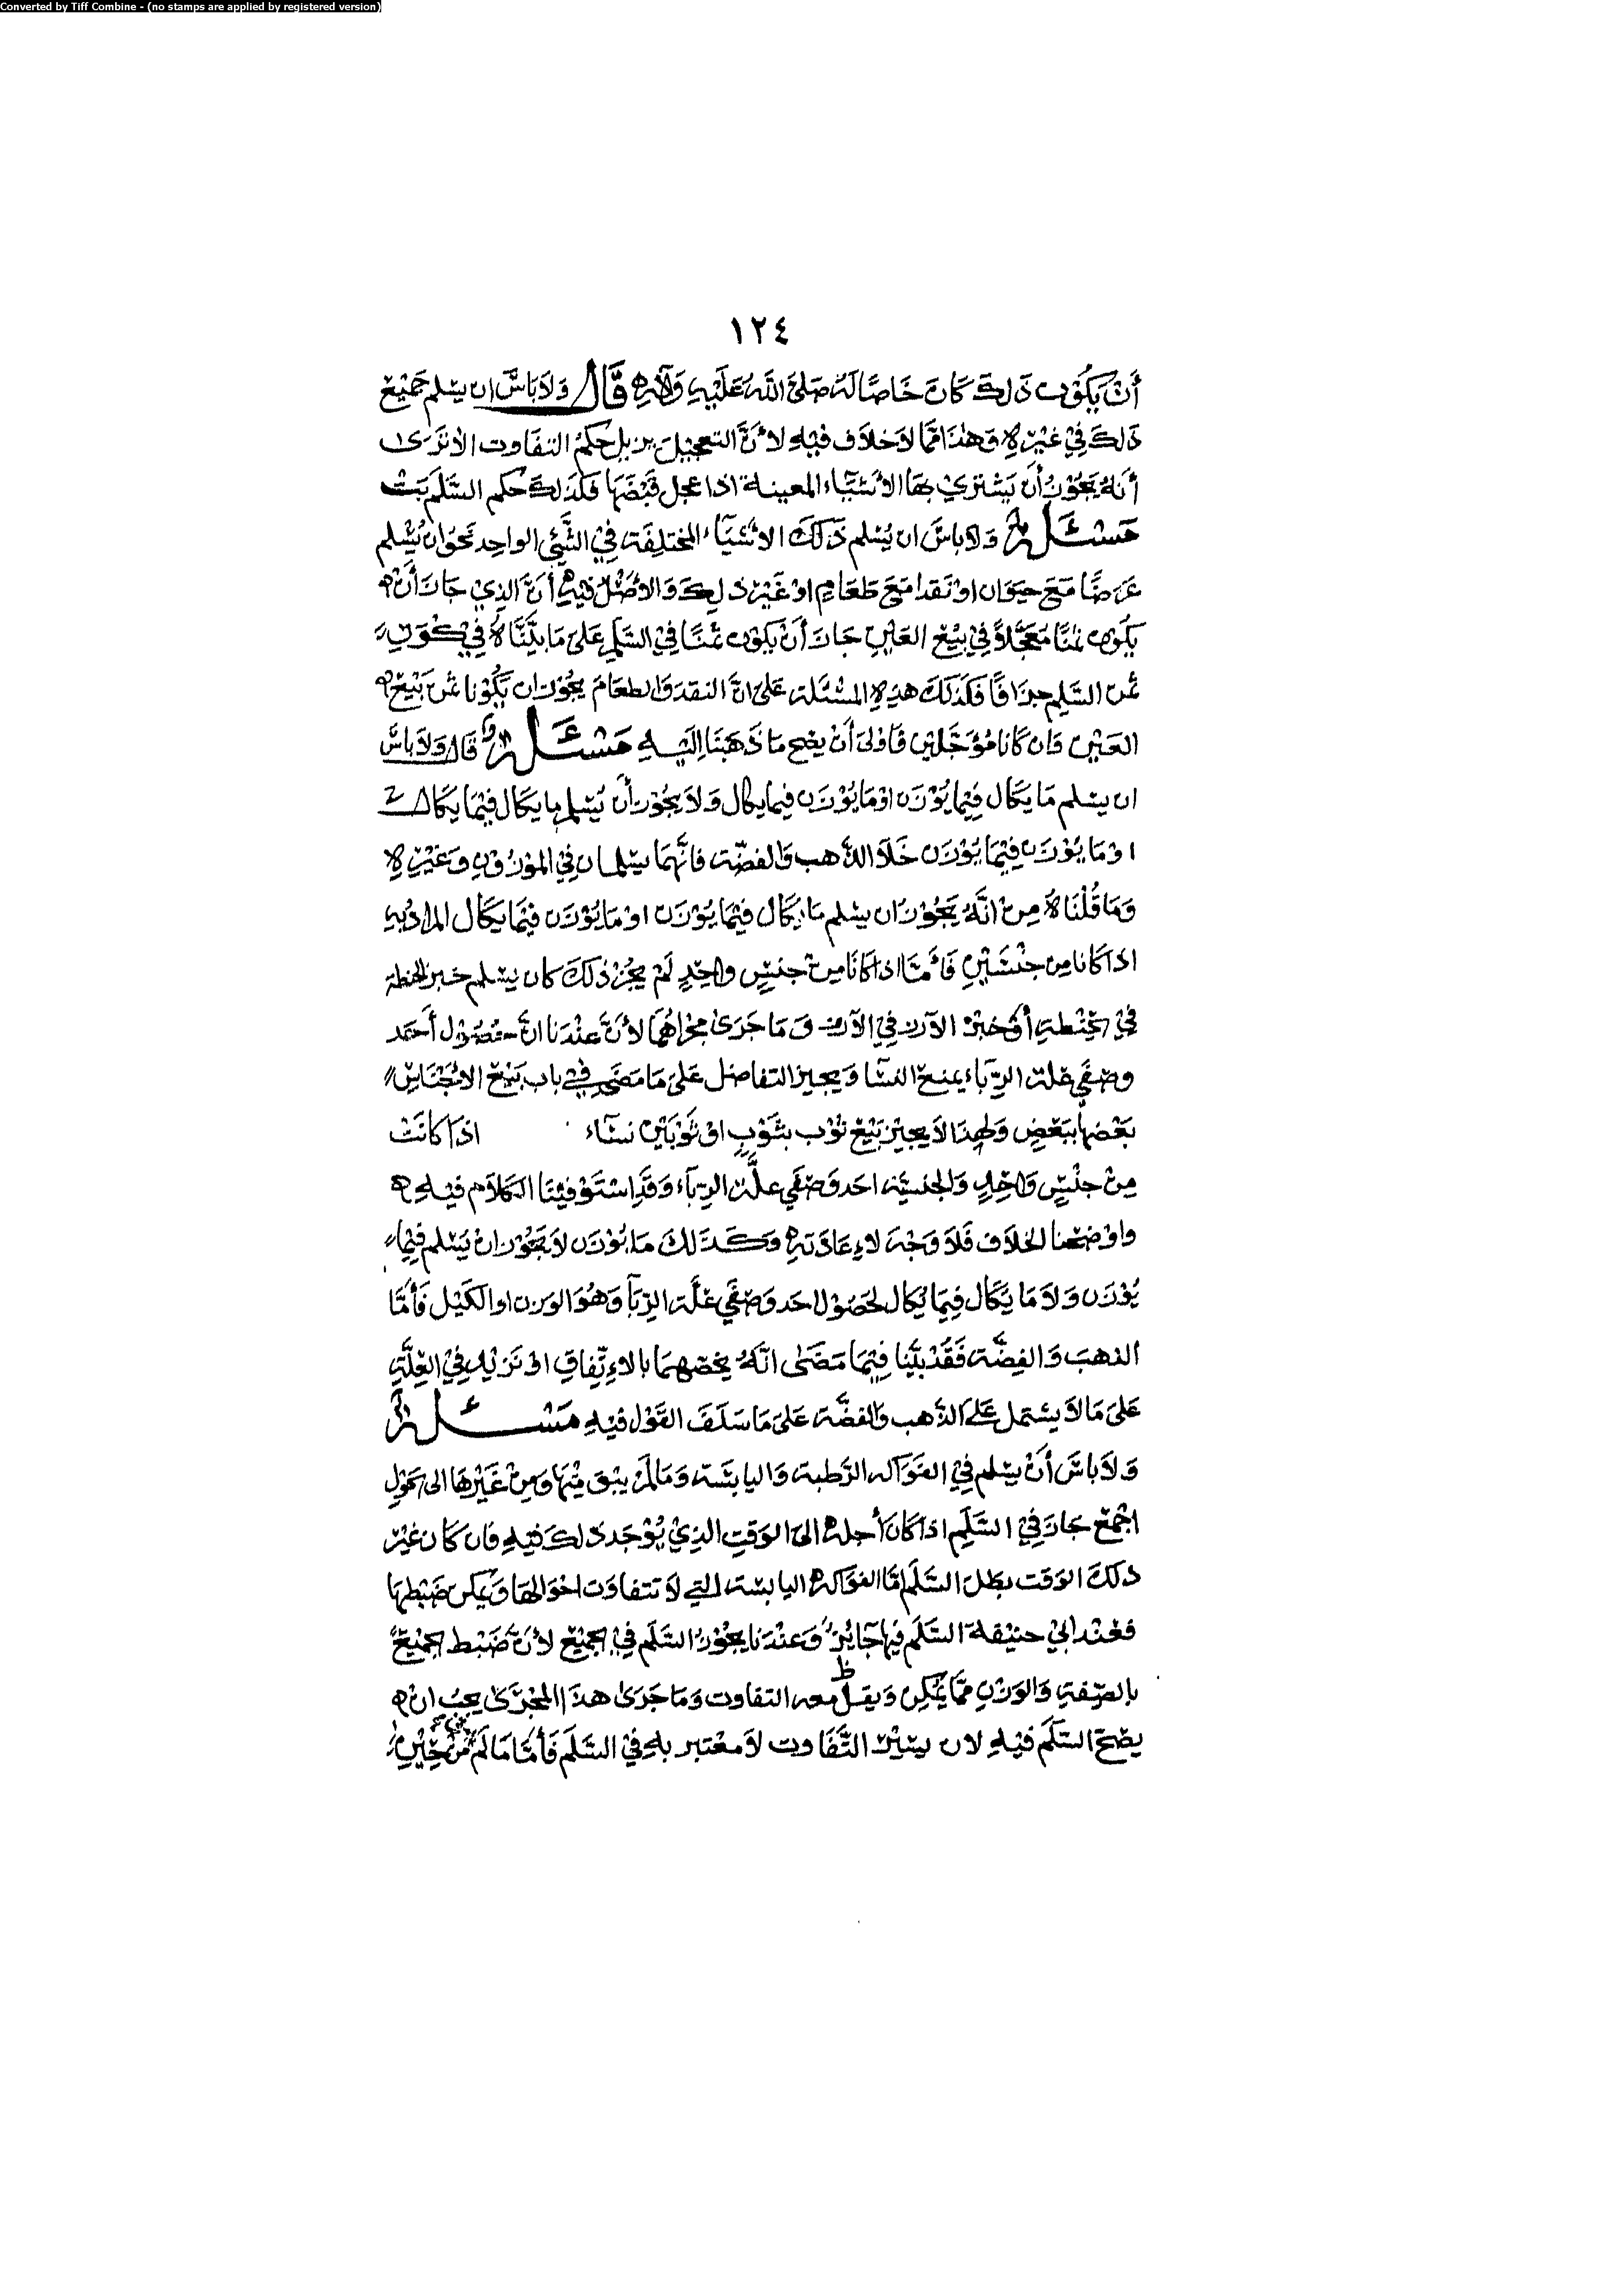 Converted by Tiff Combine - (no stamps are applied by registered version)
١٢٤
أَنْ يَكُوْنَ ذَلِكَ كَانَ خَاصًّا لَهُ صَلَّى اللهُ عَلَيْهِ وَآلِهِ قَالَ وَلَا بَاسَ ان يسلم جَمِيْعَ
ذَلِكَ فِي غَيْرِهِ وَهٰذَا مِمَّا لَا خِلَاف فِيْهِ لأَنَّ التعجيل يزيل حكمَ التفَاوت الا تَرَى
أَنَّهُ يَجُوْزُ أن يَشْتَرِي بهَا الأشيَاء المعينة اذا عجل قَبْضهَا فكَذَلِكَ حكم السَّلَم
مَسْئَلَة وَلا باسَ ان يُسْلم ذَلِكَ الاشيَآء المختلِفَة فِي الشَّيْء الواحِد نَحْو ان يُسْلم
عَرضًا مَعَ حيَوَان او نَقدا مَعَ طَعَامٍ او غَيْر ذلِكَ وَالأصْل فِيْهِ أنَّ الذِي جَازَ أنْ
يَكُوْنَ ثمنًا مُعَجَّلًا فِي بيْع العَيْنِ جَازَ أنْ يَكُوْن ثَمنًا فِي السَّلَمِ عَلَى مَا بَيَّنَّاهُ فِي كَوْنِ
ثمن السَّلم جزَافًا فَكَذلكَ هذِهِ المسْئَلة عَلَى انَّ النقدَ وَالطعَامَ يَجُوْز ان يَكُوْنا ثمن بَيْع
العَيْنِ وَان كَانا مُؤَجَّلين فَاولى أَنْ يصِح مَا ذَهَبْنَا إليْهِ مَسْئَلَة قَالَ وَلَا باسَ
ان يسلم مَا يكَال فِيْمَا يُوْزَن اوْ مَا يُوْزَن فِيْمَا يكال وَلَا يَجُوْز أن يُسْلم ما يكَال فِيْمَا يكَال
اوْ مَا يُوْزَن فِيْمَا يُوْزَن خَلَا الذَّهب وَالفضّة فانَّهُمَا يسْلمان فِي الموْزُوْنِ وَغَيْرِهِ
وَمَا قُلْنَاهُ مِنْ انَّهُ يَجُوْز ان يسْلم مَا يكَال فِيْمَا يُوْزَن اوْ مَا يُوْزَن فِيْمَا يكَال المرَاد بِهِ
اذا كَانا مِن جِنْسَيْنِ فَأَمَّا اذا كَانَا مِنْ جنسٍ واحِدٍ لَمْ يَجُزْ ذلكَ كان يسلم خبز الحنطة
فِي الحِنْطَةِ أوْ خبز الارز فِي الارز وَمَا جَرَى مجراهُمَا لأنَّ عِنْدَنا انَّ حصُوْل أحَد
وصفَي علة الربَاء يمنع النسَا ويجيز التفاضل عَلَى مَا مَضَى فِي باب بَيْع الاجْنَاسِ
بَعْضها ببَعْضٍ وَلِهذا لَا يجيز بَيْع ثوْب بثَوْبٍ اوْ ثَوْبَيْن نسَاء اذَا كَانَتْ
مِنْ جِنْسٍ وَاحِدٍ وَالجنسيّة احد وَصْفَي علَّة الربَاء وَقَد اسْتَوْفيْنَا الكلَام فيْهِ
واوْضحْنا الخِلَاف فَلَا وَجْهَ لاعَادَته وَكَذَلكَ مَا يُوْزَن لَا يَجُوْز انْ يُسْلم فِيْمَا
يُوْزَن وَلَا مَا يكَال فِيْمَا يُكال لحصُوْل احد وَصْفَي علَّة الربَا وَهُوَ الوزن او الكَيْل فَأَمَّا
الذهب وَالفِضَّة فَقَدْ بيَّنا فِيْمَا مَضَى انَّهُ يخصّهمَا بالاتِّفاق اوْ نَزيْدُ فِي العِلَّةِ
عَلَى مَا لَا يشتمل عَلَى الذَّهب وَالفضَّة عَلَى مَا سَلَفَ القَوْل فيْهِ مَسْئَلَة
وَلَا باسَ أنْ يسْلم فِي الفوَاكه الرَّطبة وَاليابسَة وَمَا لَمْ يبْق مِنْهَا وَمِنْ غَيْرهَا الى حَوْلٍ
اجْمع جَازَ فِي السَّلَم اذا كَانَ أجله الى الوَقتِ الذِي يُوْجَد ذلكَ فيْهِ فَان كَانَ غَيْر
ذلكَ الوَقت بطلَ السَّلَم امَّا الفوَاكه اليابسَة التي لَا تتفاوَت احْوَالهَا وَيمكن ضبْطهَا
فعنْد ابي حنيْفة السَّلَم فيها جَائِز وَعنْدَنا يَجُوْزُ السَّلَم فِي الجَمِيْع لأنَّ ضَبْط الجميْع
بالصّفة وَالوَزْنِ مِمَّا يُمْكِن وَيقل معه التفاوت وَمَا جَرَى هذَا المجْرَى يجبُ انْ
يصِحّ السَّلَم فيْهِ لان يسيْر التَّفَاوت لَا معْتبر بِهِ فِي السَّلَم فَأَمَّا مَا لَمْ